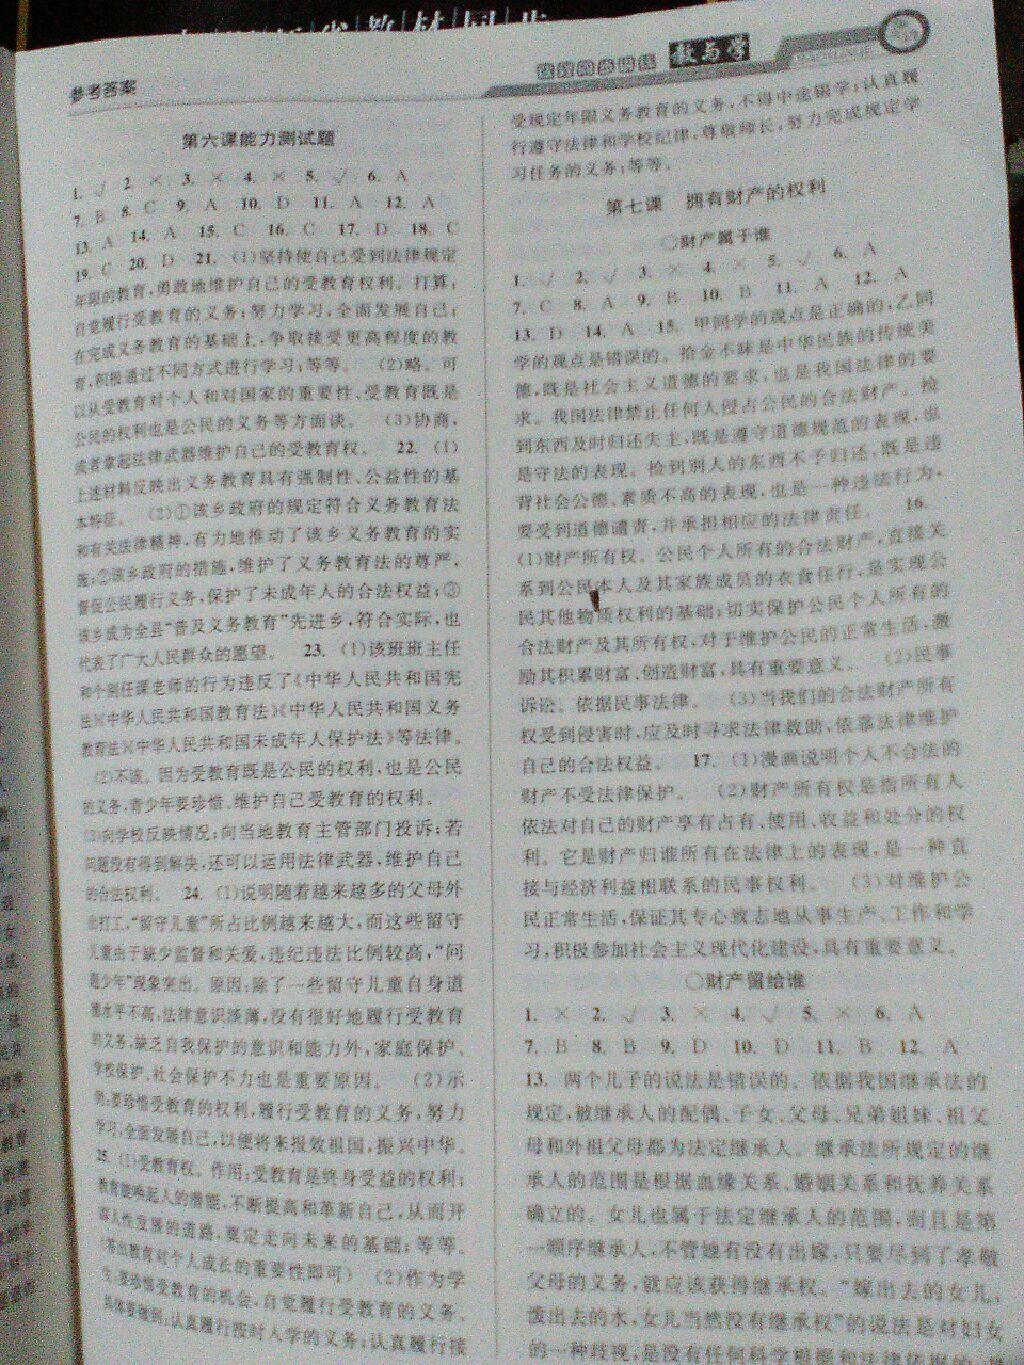 参考答案
教与学
第六课能力测试题
1. √ 2. × 3. × 4. × 5. √ 6. A
7. B 8. C 9. A 10. D 11. A 12. A
13. A 14. A 15. C 16. C 17. D 18. C
19. C 20. D 21. (1)坚持使自己受到法律规定
年限的教育,勇敢地维护自己的受教育权利。打算:
自觉履行受教育的义务;努力学习,全面发展自己;
在完成义务教育的基础上,争取接受更高程度的教
育,积极通过不同方式进行学习;等等。 (2)略。可
以从受教育对个人和对国家的重要性、受教育既是
公民的权利也是公民的义务等方面谈。 (3)协商,
或者拿起法律武器维护自己的受教育权。 22. (1)
上述材料反映出义务教育具有强制性、公益性的基
本特征。 (2)①该乡政府的规定符合义务教育法
和有关法律精神,有力地推动了该乡义务教育的实
施;②该乡政府的措施,维护了义务教育法的尊严,
督促公民履行义务,保护了未成年人的合法权益;③
该乡成为全县“普及义务教育”先进乡,符合实际,也
代表了广大人民群众的愿望。 23. (1)该班班主任
和个别任课老师的行为违反了《中华人民共和国宪
法》《中华人民共和国教育法》《中华人民共和国义务
教育法》《中华人民共和国未成年人保护法》等法律。
(2)不该。因为受教育既是公民的权利,也是公民
的义务,青少年要珍惜、维护自己受教育的权利。
(3)向学校反映情况;向当地教育主管部门投诉;若
问题没有得到解决,还可以运用法律武器,维护自己
的合法权利。 24. (1)说明随着越来越多的父母外
出打工,“留守儿童”所占比例越来越大,而这些留守
儿童由于缺少监督和关爱,违纪违法比例较高,“问
题少年”现象突出。原因:除了一些留守儿童自身道
德水平不高,法律意识淡薄,没有很好地履行受教育
的义务,缺乏自我保护的意识和能力外,家庭保护、
学校保护、社会保护不力也是重要原因。 (2)示
例:要珍惜受教育的权利,履行受教育的义务,努力
学习,全面发展自己,以便将来报效祖国,振兴中华。
25. (1)受教育权。作用:受教育是终身受益的权利;
教育能唤起人的潜能,不断提高和革新自己,从而开
辟人性发展的道路,奠定走向未来的基础;等等。
(答出教育对个人成长的重要性即可) (2)作为学
生,要珍惜受教育的机会,自觉履行受教育的义务。
具体要做到:认真履行按时入学的义务;认真履行接
受规定年限义务教育的义务,不得中途辍学;认真履
行遵守法律和学校纪律,尊敬师长,努力完成规定学
习任务的义务;等等。
第七课 拥有财产的权利
○财产属于谁
1. √ 2. √ 3. × 4. × 5. √ 6. A
7. C 8. A 9. B 10. B 11. A 12. A
13. D 14. A 15. 甲同学的观点是正确的,乙同
学的观点是错误的。拾金不昧是中华民族的传统美
德,既是社会主义道德的要求,也是我国法律的要
求。我国法律禁止任何人侵占公民的合法财产。捡
到东西及时归还失主,既是遵守道德规范的表现,也
是守法的表现。捡到别人的东西不予归还,既是违
背社会公德、素质不高的表现,也是一种违法行为,
要受到道德谴责,并承担相应的法律责任。 16.
(1)财产所有权。公民个人所有的合法财产,直接关
系到公民本人及其家族成员的衣食住行,是实现公
民其他物质权利的基础;切实保护公民个人所有的
合法财产及其所有权,对于维护公民的正常生活,激
励其积累财富、创造财富,具有重要意义。 (2)民事
诉讼。依据民事法律。 (3)当我们的合法财产所有
权受到侵害时,应及时寻求法律救助,依靠法律维护
自己的合法权益。 17. (1)漫画说明个人不合法的
财产不受法律保护。 (2)财产所有权是指所有人
依法对自己的财产享有占有、使用、收益和处分的权
利。它是财产归谁所有在法律上的表现,是一种直
接与经济利益相联系的民事权利。 (3)对维护公
民正常生活,保证其专心致志地从事生产、工作和学
习,积极参加社会主义现代化建设,具有重要意义。
○财产留给谁
1. × 2. √ 3. × 4. √ 5. × 6. A
7. B 8. B 9. D 10. D 11. B 12. A
13. 两个儿子的说法是错误的。依据我国继承法的
规定,被继承人的配偶、子女、父母、兄弟姐妹、祖父
母和外祖父母都为法定继承人。继承法所规定的继
承人的范围是根据血缘关系、婚姻关系和抚养关系
确立的。女儿也属于法定继承人的范围,而且是第
一顺序继承人,不管她有没有出嫁,只要尽到了孝敬
父母的义务,就应该获得继承权。“嫁出去的女儿,
泼出去的水,女儿当然没有继承权”的说法是对妇女
的一种歧视,是没有任何科学根据和法律依据的